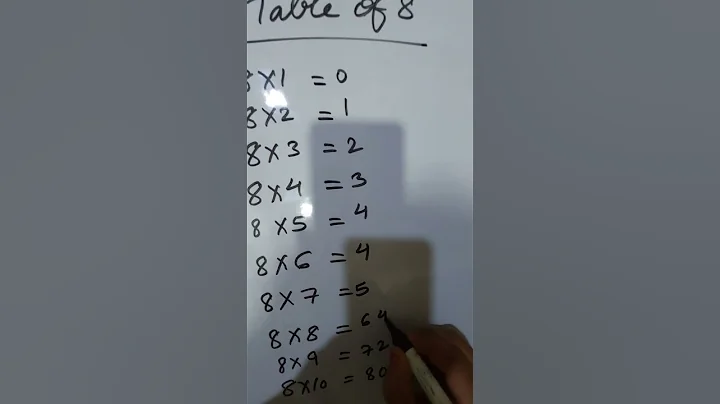 Table of 8
8X1 = 0
8X2 = 1
8X3 = 2
8X4 = 3
8X5 = 4
8X6 = 4
8X7 = 5
8X8 = 64
8X9 = 72
8X10 = 80